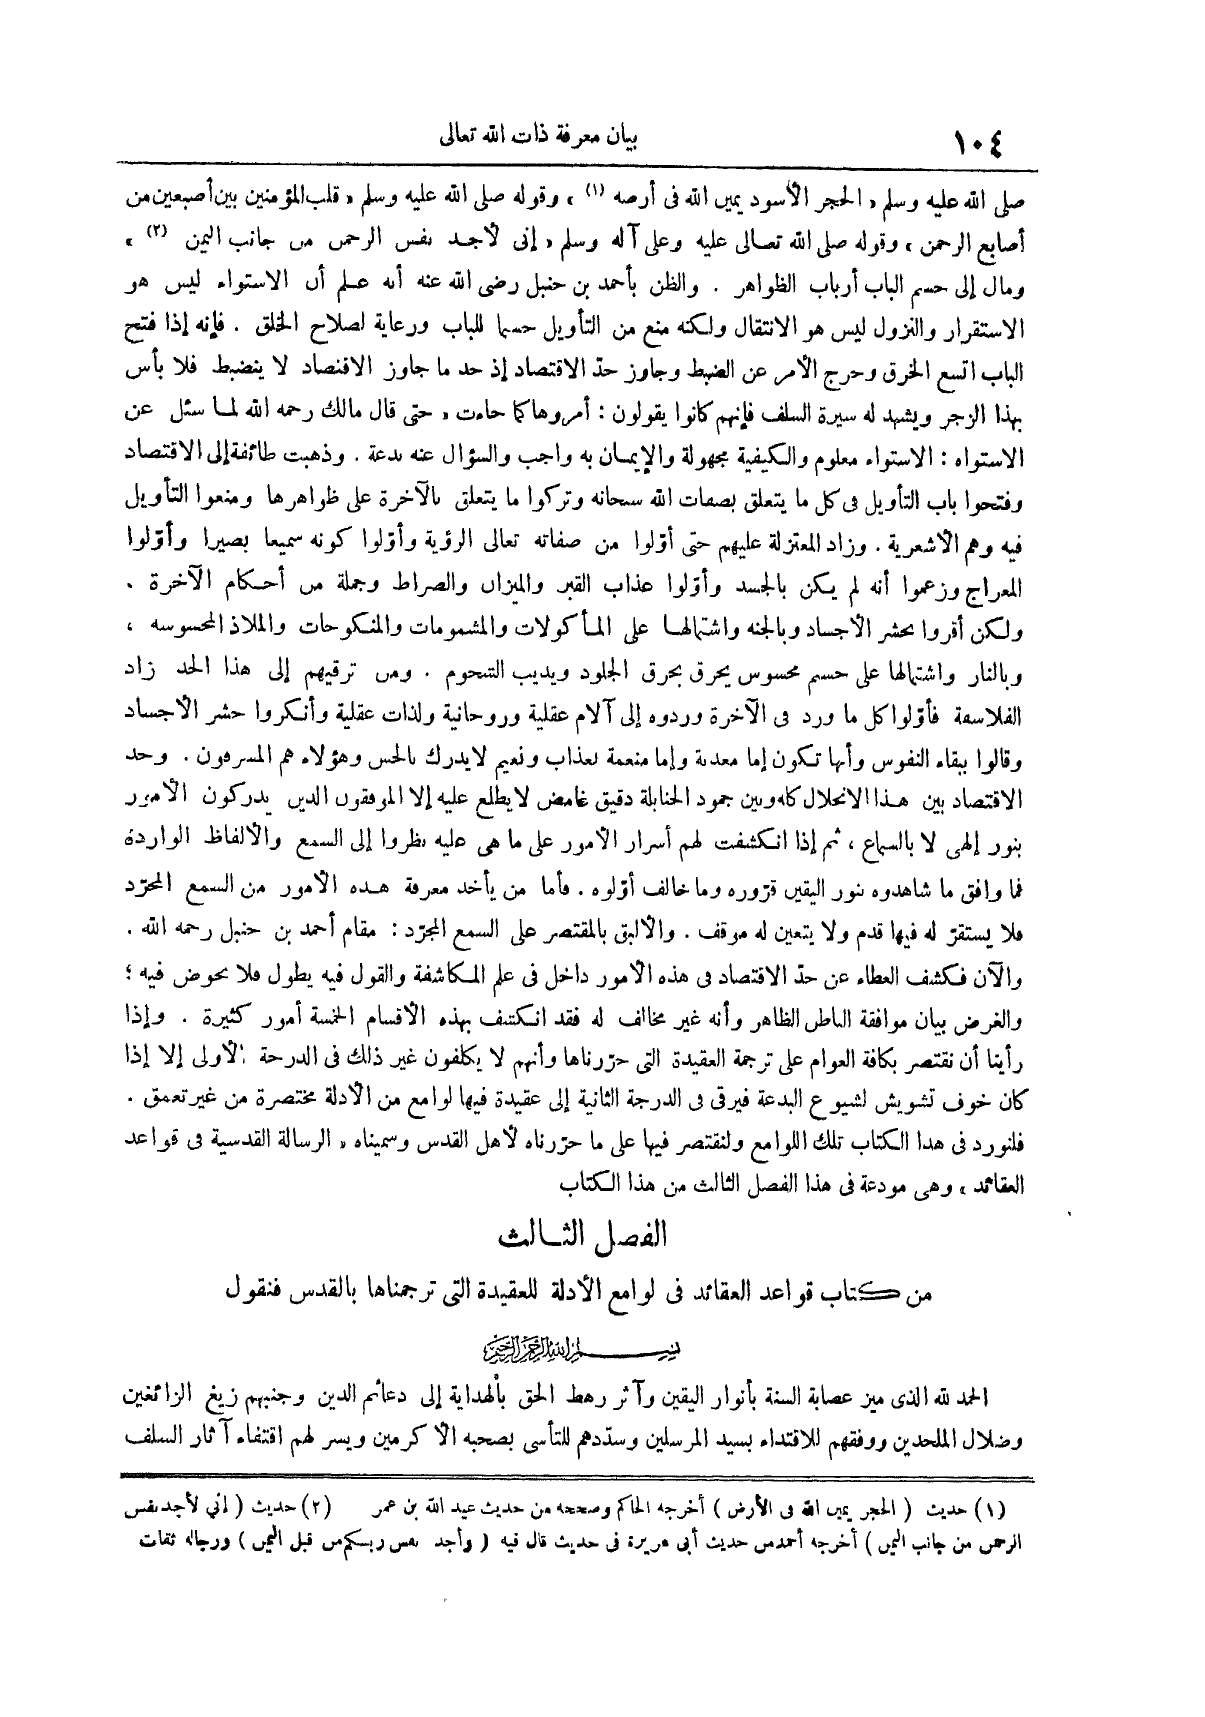 ١٠٤ بيان معرفة ذات الله تعالى
صلى الله عليه وسلم « الحجر الأسود يمين الله فى أرضه (١) » وقوله صلى الله عليه وسلم « قلب المؤمنين بين أصبعين من
أصابع الرحمن » وقوله صلى الله تعالى عليه وعلى آله وسلم « إنى لأجد نفس الرحمن من جانب اليمن (٢) »
ومال إلى حسم الباب أرباب الظواهر . والظن بأحمد بن حنبل رضى الله عنه أنه علم أن الاستواء ليس هو
الاستقرار والنزول ليس هو الانتقال ولكنه منع من التأويل حسما للباب ورعاية لصلاح الخلق . فإنه إذا فتح
الباب اتسع الخرق وخرج الأمر عن الضبط وجاوز حدّ الاقتصاد إذ حد ما جاوز الاقتصاد لا ينضبط فلا بأس
بهذا الزجر ويشهد له سيرة السلف فإنهم كانوا يقولون : أمروها كما جاءت ، حتى قال مالك رحمه الله لما سئل عن
الاستواء : الاستواء معلوم والكيفية مجهولة والإيمان به واجب والسؤال عنه بدعة . وذهبت طائفة إلى الاقتصاد
وفتحوا باب التأويل فى كل ما يتعلق بصفات الله سبحانه وتركوا ما يتعلق بالآخرة على ظواهرها ومنعوا التأويل
فيه وهم الأشعرية . وزاد المعتزلة عليهم حتى أوّلوا من صفاته تعالى الرؤية وأوّلوا كونه سميعا بصيرا وأوّلوا
المعراج وزعموا أنه لم يكن بالجسد وأوّلوا عذاب القبر والميزان والصراط وجملة من أحكام الآخرة .
ولكن أقروا بحشر الأجساد وبالجنه واشتمالها على المأكولات والمشمومات والمنكوحات والملاذ المحسوسه ،
وبالنار واشتمالها على جسم محسوس يحرق بحرق الجلود ويذيب الشحوم . ومن ترقيهم إلى هذا الحد زاد
الفلاسفة فأوّلوا كل ما ورد فى الآخرة وردوه إلى آلام عقلية وروحانية ولذات عقلية وأنكروا حشر الأجساد
وقالوا ببقاء النفوس وأنها تكون إما معذبة وإما منعمة بعذاب ونعيم لا يدرك بالحس وهؤلاء هم المسرفون . وحد
الاقتصاد بين هذا الانحلال كله وبين جمود الحنابلة دقيق غامض لا يطلع عليه إلا الموفقون الذين يدركون الأمور
بنور إلهى لا بالسماع ، ثم إذا انكشفت لهم أسرار الأمور على ما هى عليه نظروا إلى السمع والألفاظ الواردة
فما وافق ما شاهدوه بنور اليقين قرّروه وما خالف أوّلوه . فأما من يأخذ معرفة هذه الأمور من السمع المجرّد
فلا يستقرّ له فيها قدم ولا يتعين له موقف . والأليق بالمقتصر على السمع المجرّد : مقام أحمد بن حنبل رحمه الله .
والآن فكشف الغطاء عن حدّ الاقتصاد فى هذه الأمور داخل فى علم المكاشفة والقول فيه يطول فلا نخوض فيه ؛
والغرض بيان موافقة الباطن الظاهر وأنه غير مخالف له فقد انكشف بهذه الأقسام الخمسة أمور كثيرة . وإذا
رأينا أن نقتصر بكافة العوام على ترجمة العقيدة التى حرّرناها وأنهم لا يكلفون غير ذلك فى الدرجة الأولى إلا إذا
كان خوف تشويش لشيوع البدعة فيرقى فى الدرجة الثانية إلى عقيدة فيها لوامع من الأدلة مختصرة من غير تعمق .
فلنورد فى هذا الكتاب تلك اللوامع ولنقتصر فيها على ما حرّرناه لأهل القدس وسميناه « الرسالة القدسية فى قواعد
العقائد » وهى مودعة فى هذا الفصل الثالث من هذا الكتاب
الفصل الثالث
من كتاب قواعد العقائد فى لوامع الأدلة للعقيدة التى ترجمناها بالقدس فنقول
بسم الله الرحمن الرحيم
الحمد لله الذى ميز عصابة السنة بأنوار اليقين وآثر رهط الحق بالهداية إلى دعائم الدين وجنبهم زيغ الزائغين
وضلال الملحدين ووفقهم للاقتداء بسيد المرسلين وسدّدهم للتأسى بصحبه الأكرمين ويسر لهم اقتفاء آثار السلف
(١) حديث ( الحجر يمين الله فى الأرض ) أخرجه الحاكم وصححه من حديث عبد الله بن عمر (٢) حديث ( إنى لأجد نفس
الرحمن من جانب اليمن ) أخرجه أحمد من حديث أبى هريرة فى حديث قال فيه ( وأجد نفس ربكم من قبل اليمن ) ورجاله ثقات